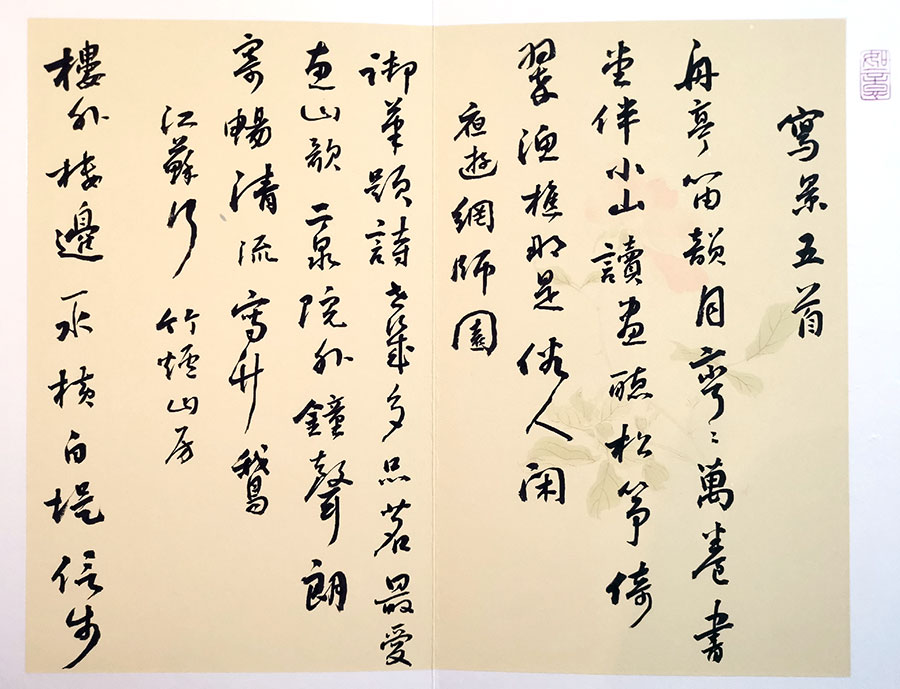 寫景五首
舟亭笛韻月彎彎萬卷書
堂伴小山讀畫聽松箏倚
翠漁樵那是俗人閑
夜遊網師園
御筆題詩多品茗最愛
惠山歌二泉院外鐘聲朗
寄暢清流寫鵝
江蘇行 竹爐山房
樓外樓邊一水橫白堤信步